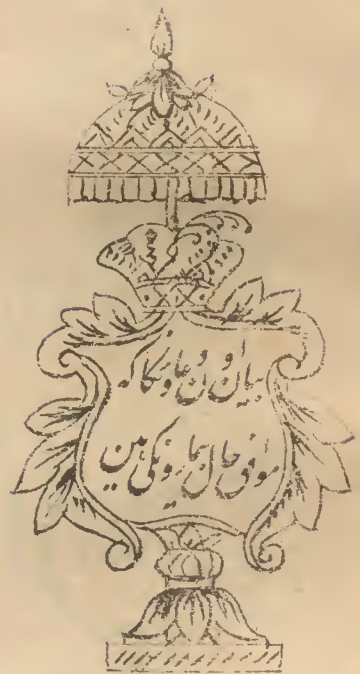 بیان اون دعاونکا کہ
موافق حال بیمارونکی ہین